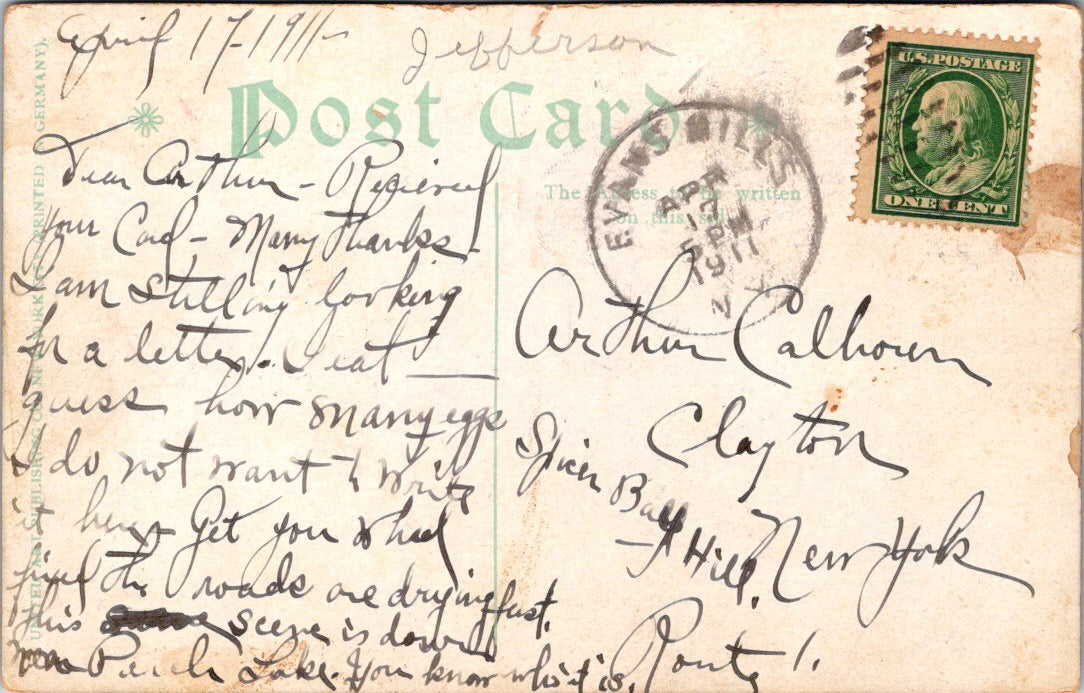 April 17-1911-
Jefferson
Post Card
U.S. POSTAGE
ONE CENT
EVANS MILLS
APR
PM
1911
The Address to be written
on this side
PRINTED IN GERMANY).
Dear Arthur - Recieved
your Card - Many Thanks -
I am still looking
for a letter. I eat ____
guess how many eggs
I do not want to write
it here - Get you wheel
the roads are drying fast.
This scene is down
Perch Lake. You know who it is.
Arthur Calhoun
Clayton
Spicer Bay
Hill.
New York
Route 1.